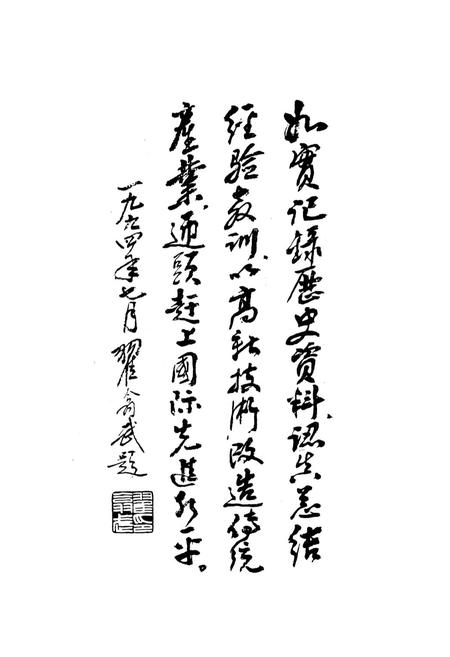 如實记録歷史資料、認真总结
经验教训、以高新技術改造傳统
產業、迎頭赶上國际先進水平。
一九九四年七月翟翕武題